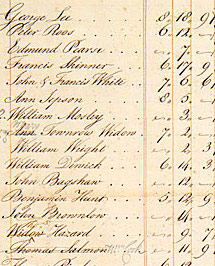 George Lee .. 8 .. 18 .. 9
Peter Roos .. 6 .. 12 .. „
Edmund Pearse .. „ .. 7 .. „
Francis Skinner .. 6 .. 17 .. 9
John & Francis White .. 7 .. 6 .. 6
Ann Jepson .. 8 .. 5 .. „
William Mosley .. „ .. 3 .. „
Ann Widow .. 7 .. 2 .. „
William Weight .. „ .. 2 .. 3
William .. 6 .. 14 .. 3
John Bagshaw .. „ .. 12 .. „
Benjamin Hunt .. 5 .. 12 .. 9
John Brownlow .. „ .. 4 .. „
Widow Hazard .. „ .. 9 .. 7
Thomas Salmon .. „ .. 11 .. 9